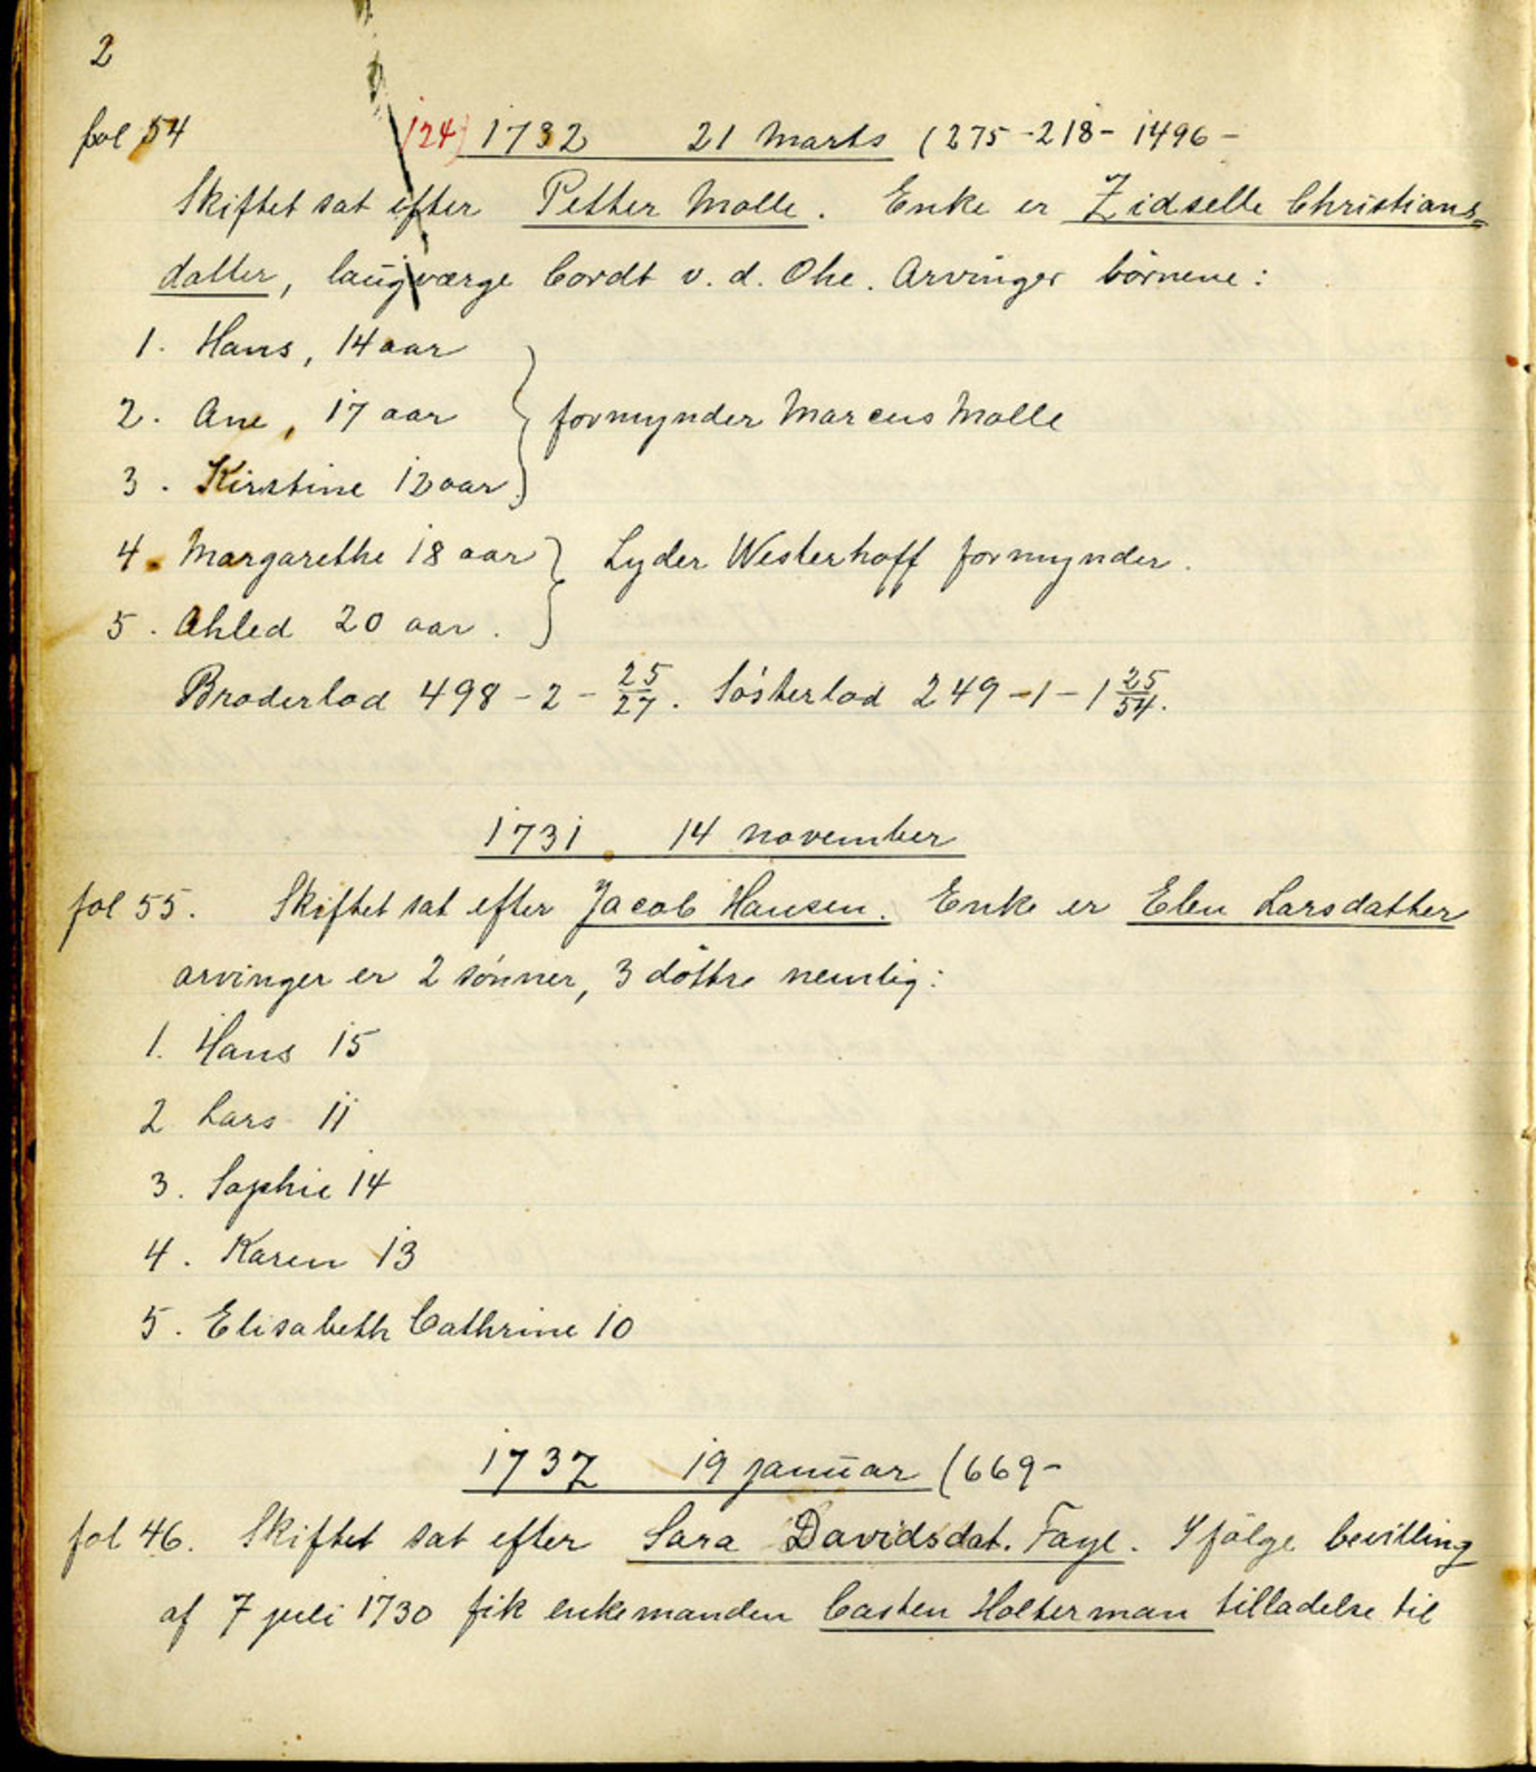 2
fol 54 (24) 1732 21 Marts (275-218-1496-
Skiftet sat efter Petter Molle. Enke er Zidselle Christians=
datter, laugværge Cordt v. d. Ohe. Arvinger börnene:
1. Hans, 14 aar
2. Ane, 17 aar } formynder Marcus Molle
3. Kirstine 12 aar
4. Margarethe 18 aar } Lyder Westerhoff formynder.
5. Ahled 20 aar.
Broderlod 498-2-25/27. Sösterlod 249-1-1 25/54.
1731 14 november
fol 55. Skiftet sat efter Jacob Hansen. Enke er Elen Larsdatter
arvinger er 2 sönner, 3 döttre nemlig:
1. Hans 15
2 Lars 11
3. Sophie 14
4. Karen 13
5. Elisabeth Cathrine 10
1737 19 januar (669-
fol 46. Skiftet sat efter Sara Davidsdat. Faye. Ifölge bevilling
af 7 juli 1730 fik enkemanden Casten Holterman tilladelse til